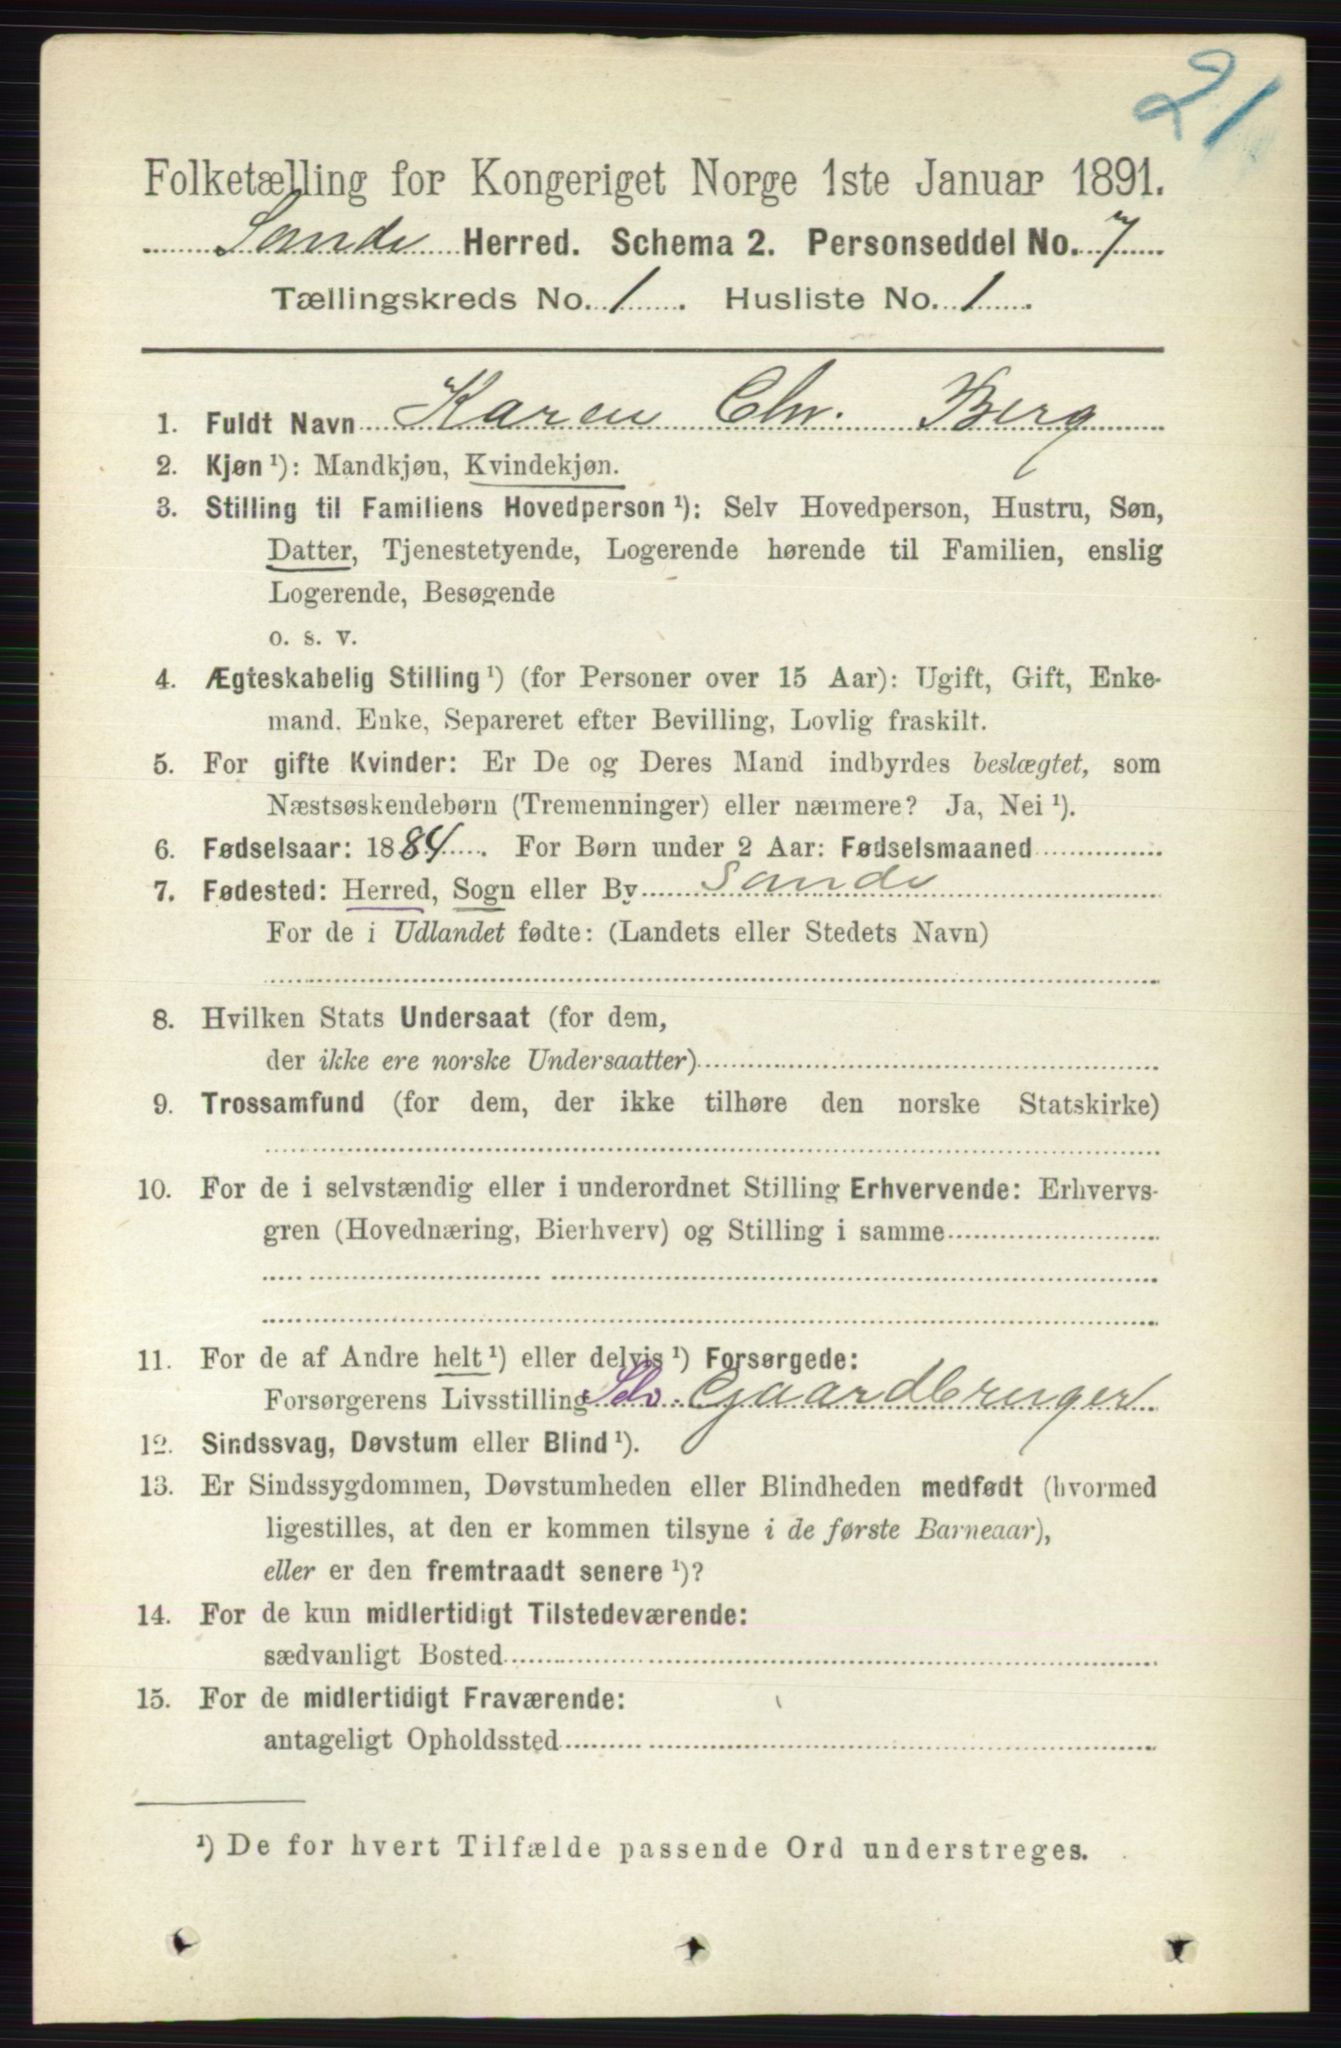 21
Folketælling for Kongeriget Norge 1ste Januar 1891.
Sande Herred. Schema 2. Personseddel No. 7
Tællingskreds No. 1. Husliste No. 1.
1. Fuldt Navn Karen Chr. Berg
2. Kjøn ¹): Mandkjøn, Kvindekjøn.
3. Stilling til Familiens Hovedperson ¹): Selv Hovedperson, Hustru, Søn,
Datter, Tjenestetyende, Logerende hørende til Familien, enslig
Logerende, Besøgende
o. s. v.
4. Ægteskabelig Stilling ¹) (for Personer over 15 Aar): Ugift, Gift, Enke-
mand. Enke, Separeret efter Bevilling, Lovlig fraskilt.
5. For gifte Kvinder: Er De og Deres Mand indbyrdes beslægtet, som
Næstsøskendebørn (Tremenninger) eller nærmere? Ja, Nei ¹).
6. Fødselsaar: 1884. For Børn under 2 Aar: Fødselsmaaned
7. Fødested: Herred, Sogn eller By Sande
For de i Udlandet fødte: (Landets eller Stedets Navn)
8. Hvilken Stats Undersaat (for dem,
der ikke ere norske Undersaatter)
9. Trossamfund (for dem, der ikke tilhøre den norske Statskirke)
10. For de i selvstændig eller i underordnet Stilling Erhvervende: Erhvervs-
gren (Hovednæring, Bierhverv) og Stilling i samme
11. For de af Andre helt ¹) eller delvis ¹) Forsørgede:
Forsørgerens Livsstilling Selv. Gaardbruger
12. Sindssvag, Døvstum eller Blind ¹).
13. Er Sindssygdommen, Døvstumheden eller Blindheden medfødt (hvormed
ligestilles, at den er kommen tilsyne i de første Barneaar),
eller er den fremtraadt senere ¹)?
14. For de kun midlertidigt Tilstedeværende:
sædvanligt Bosted
15. For de midlertidigt Fraværende:
antageligt Opholdssted
¹) De for hvert Tilfælde passende Ord understreges.